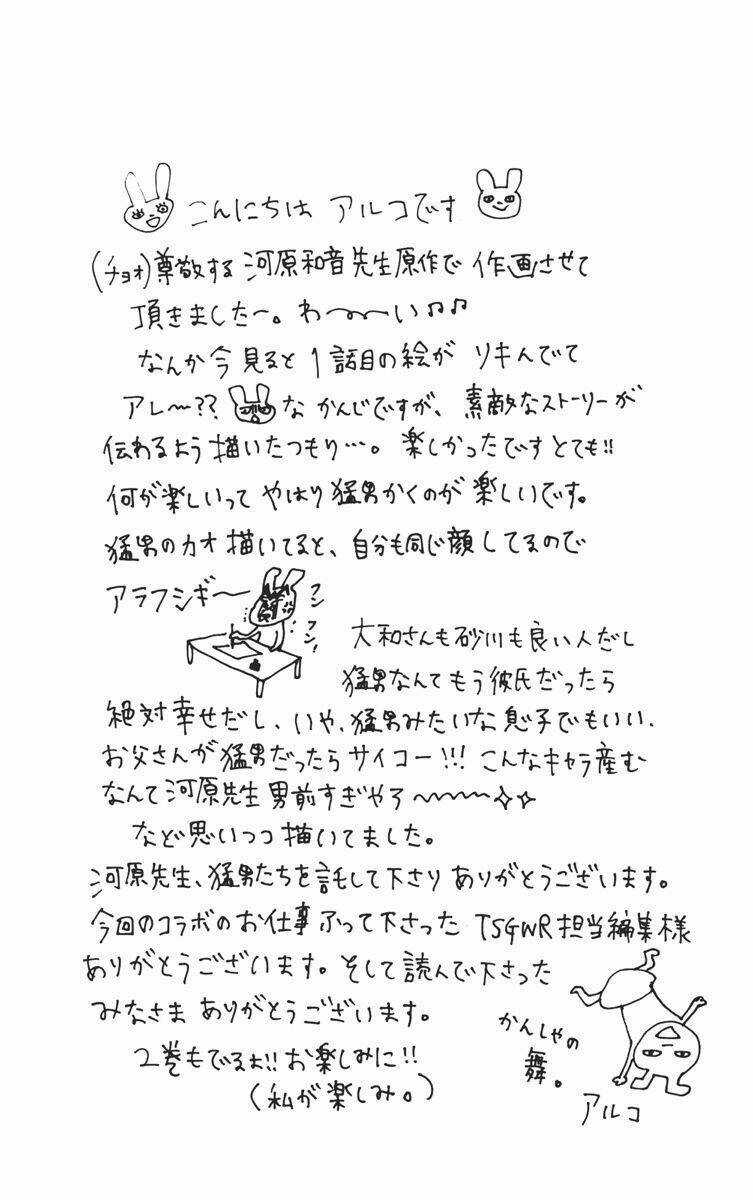 こんにちは アルコです
(チョオ)尊敬する 河原和音先生原作で 作画させて
頂きました〜。わ〜〜い♪♪
なんか今見ると 1話目の絵が リキんでて
アレ〜?? な かんじですが、素敵なストーリーが
伝わるよう描いたつもり…。楽しかったですとても!!
何が楽しいって やはり猛男かくのが 楽しいです。
猛男のカオ描いてると、自分も同じ顔してるので
アラフシギ〜
フン
フン!
大和さんも砂川も良い人だし
猛男なんてもう彼氏だったら
絶対幸せだし、いや、猛男みたいな息子でもいい、
お父さんが猛男だったらサイコー!!! こんなキャラ産む
なんて河原先生 男前すぎやろ〜〜〜
など思いつつ描いてました。
河原先生、猛男たちを託して下さり ありがとうございます。
今回のコラボのお仕事ふって下さった TSGWR担当編集様
ありがとうございます。そして読んで下さった
みなさま ありがとうございます。
2巻もでるよ!! お楽しみに!!
(私が楽しみ。)
かんしゃの
舞。
アルコ